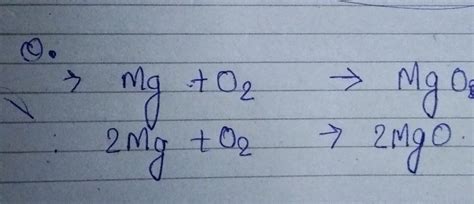 → Mg + O₂ → MgO₂
∴ 2Mg + O₂ → 2MgO.